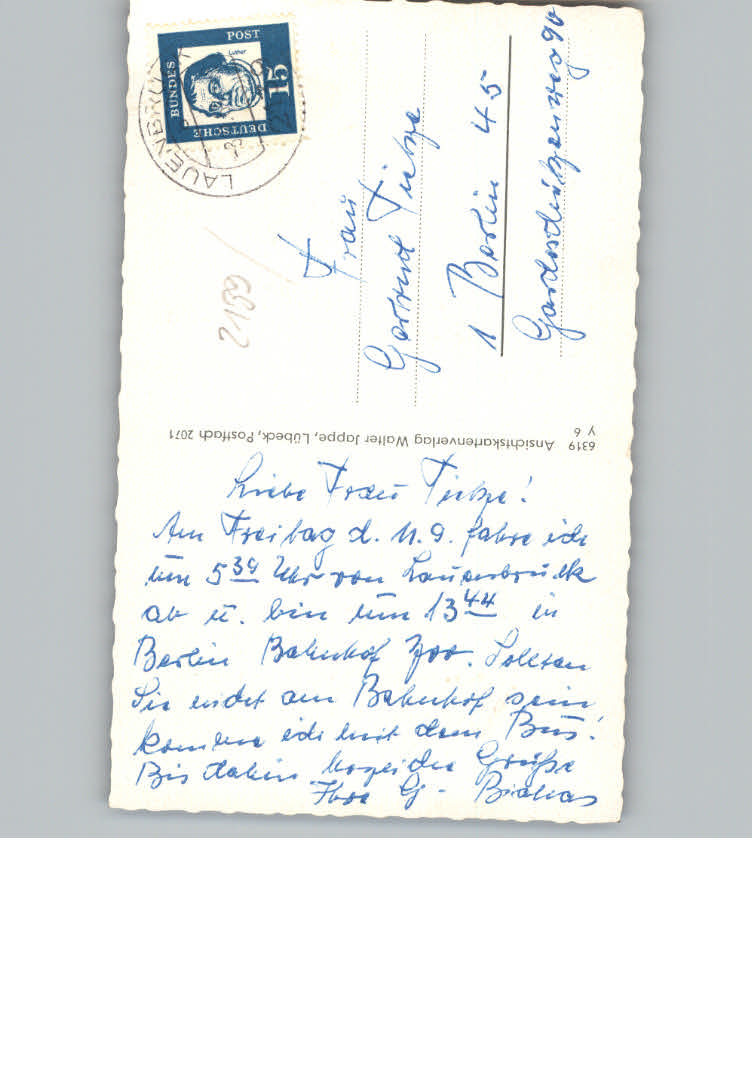 DEUTSCHE
BUNDES
POST
15
Luther
LAUENBRÜCK
Frau
Gertrud Tietze
1 Berlin 45
Gardeschützenweg 90
2199
6319 Ansichtskartenverlag Walter Jappe, Lübeck, Postfach 2071
y 6
Liebe Frau Tietze!
Am Freitag d. 11.9. fahre ich
um 5 39 Uhr von Lauenbrück
ab u. bin um 13 44 in
Berlin Bahnhof Zoo. Sollten
Sie nicht am Bahnhof sein
komme ich mit dem Bus!
Bis dahin herzliche Grüße
Ihre G.